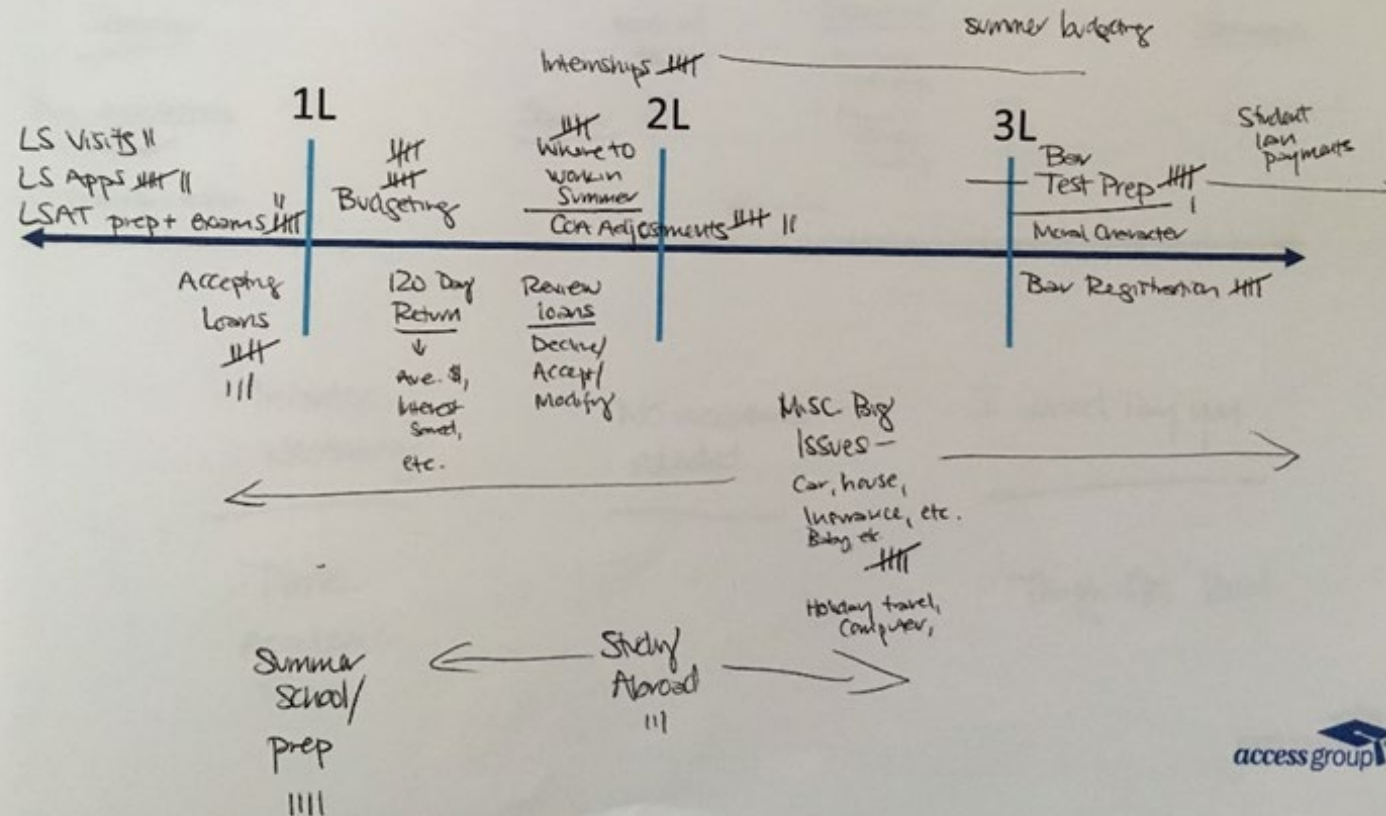 summer budgeting
Internships
1L
2L
3L
LS Visits
LS Apps
LSAT prep + exams
Budgeting
Where to
work in
Summer
COA Adjustments
Bar
Test Prep
Moral Character
Student
loan
payments
Accepting
Loans
120 Day
Return
Ave. $,
Interest
Saved,
etc.
Review
loans
Decline/
Accept/
Modify
Bar Registration
Misc. Big
Issues –
Car, house,
Insurance, etc.
Baby, etc
Holiday travel,
Computer,
Summer
School/
prep
Study
Abroad
access group